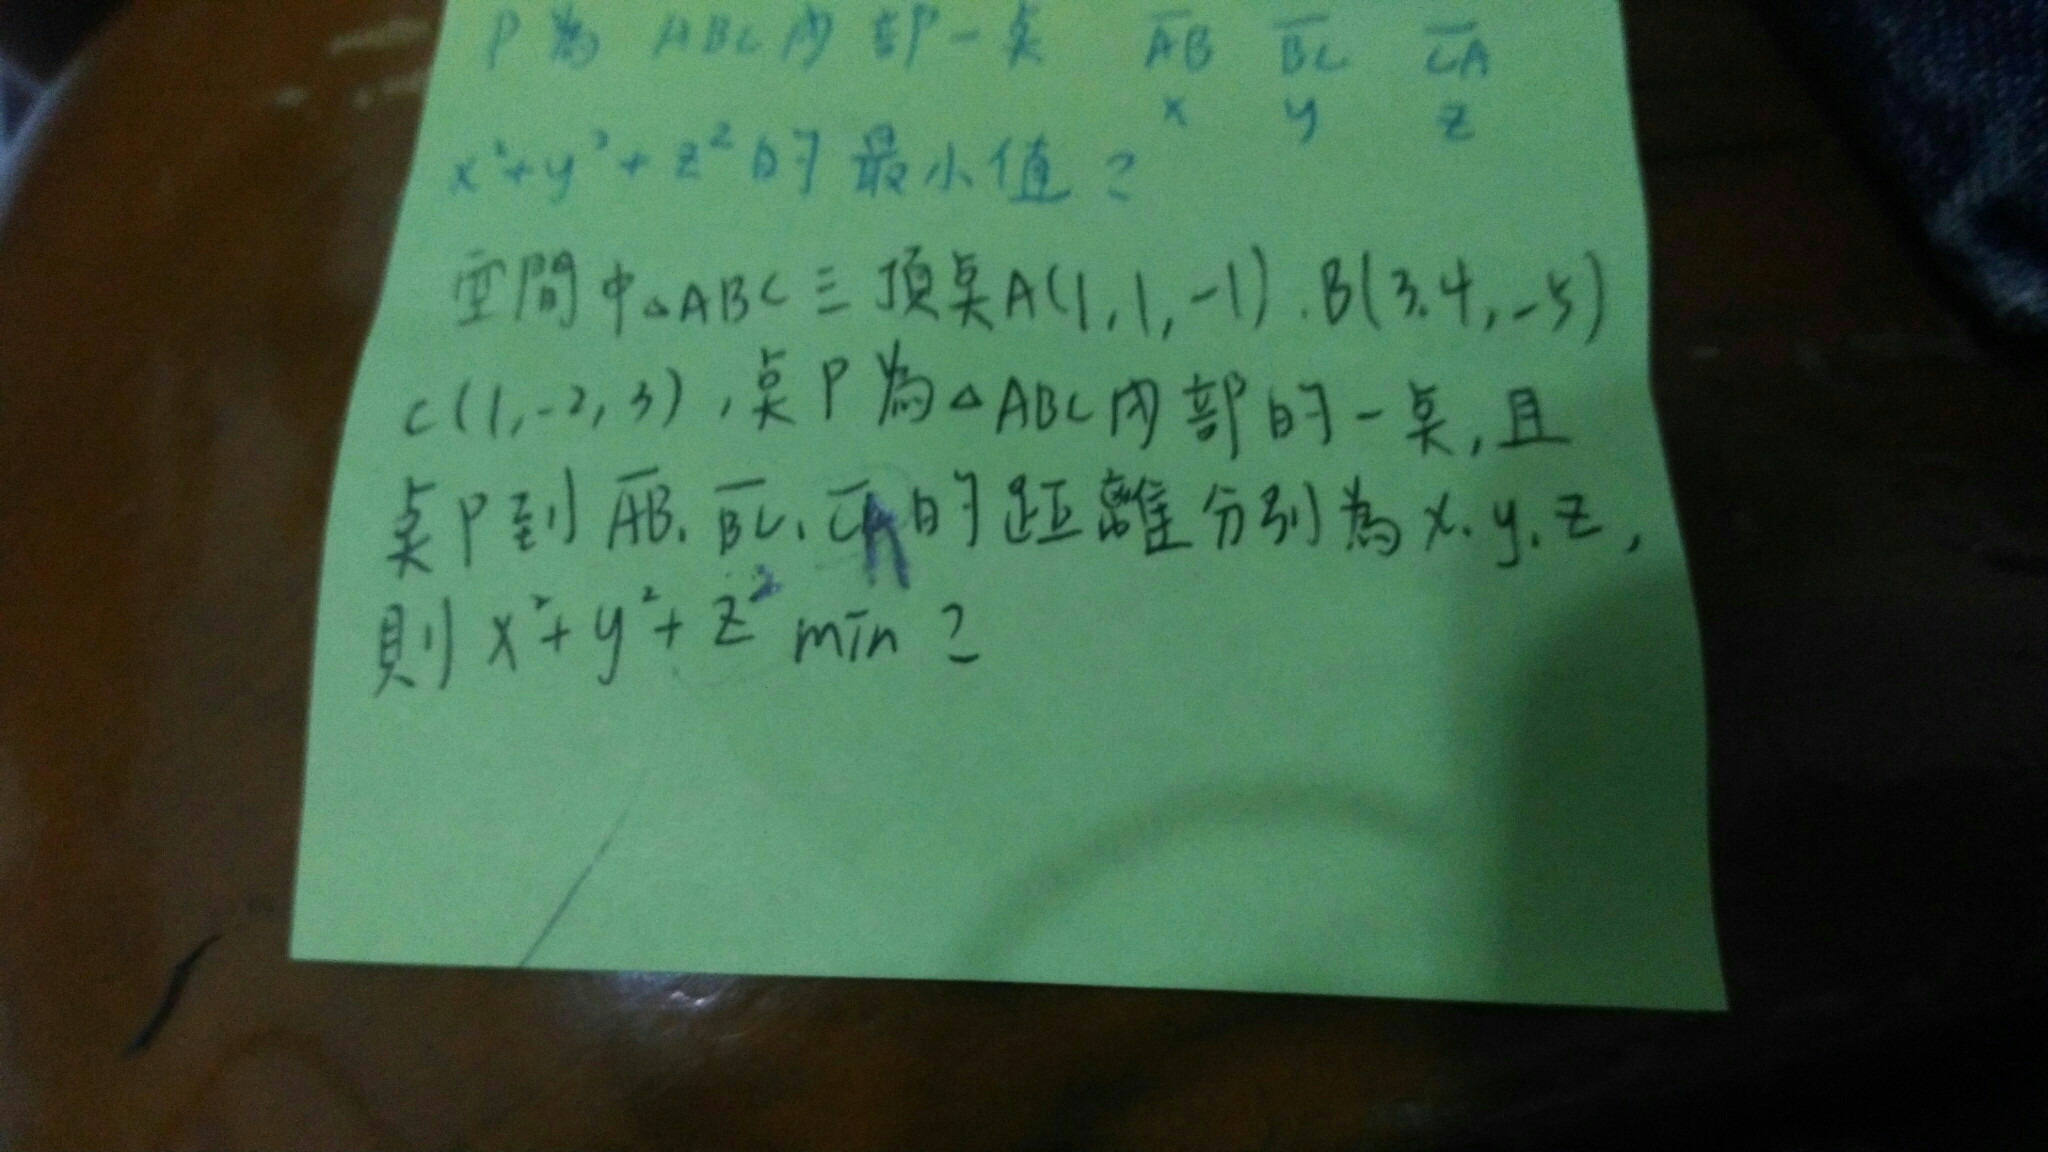 P為 ABC內部一点 AB BC CA
x y z
x²+y²+z²的最小值?
空間中△ABC三頂点A(1,1,-1).B(3.4,-5)
C(1,-2,3),点P為△ABC內部的一点,且
点P到AB.BC.CA的距離分別為x.y.z,
則x²+y²+z² min?